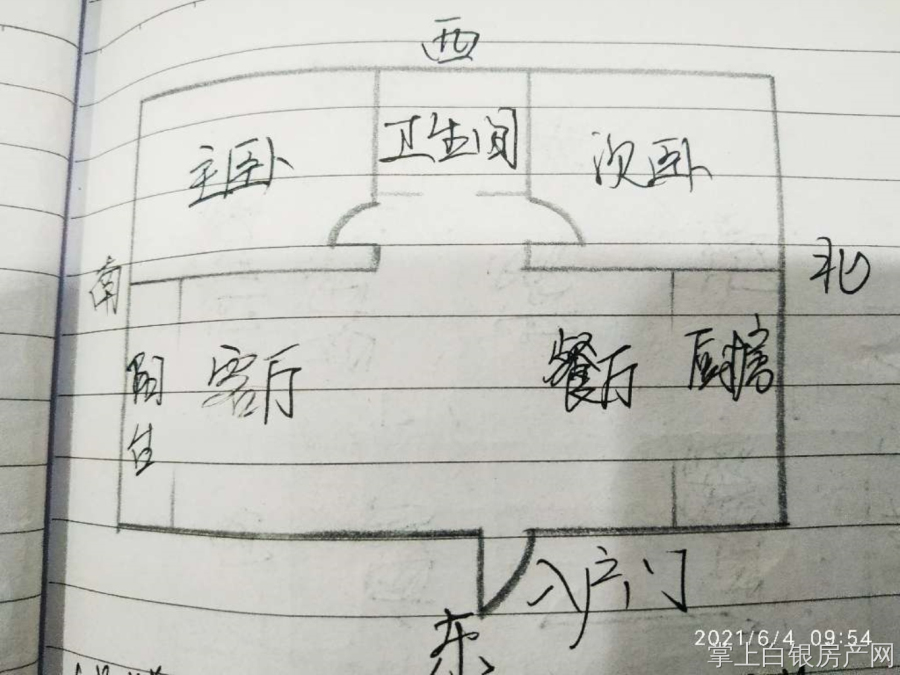 西
主卧
卫生间
次卧
南
北
阳
台
客厅
餐厅
厨房
入户门
东
2021/6/4 09:54
掌上白银房产网